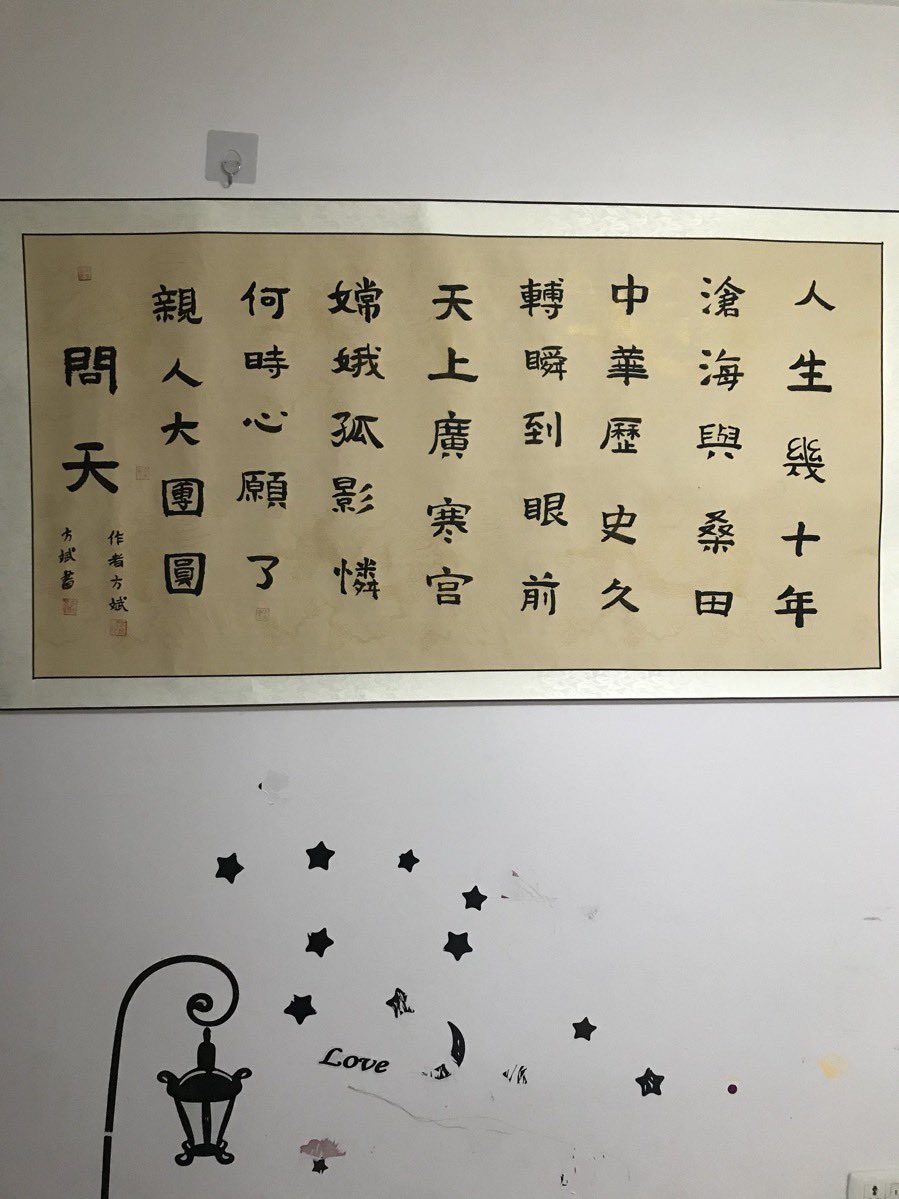 人生幾十年
滄海與桑田
中華歷史久
轉瞬到眼前
天上廣寒宮
嫦娥孤影憐
何時心願了
親人大團圓
問天
作者方斌
方斌書
Love